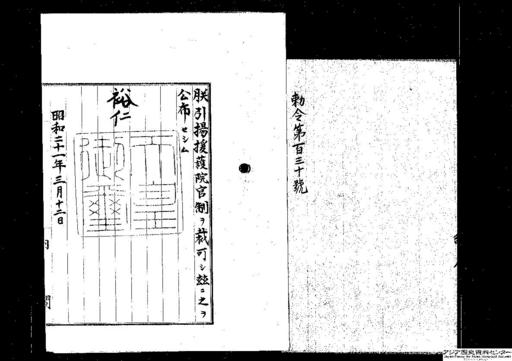 勅令第百三十號
朕引揚援護院官制ヲ裁可シ茲ニ之ヲ
公布セシム
裕仁
天皇御璽
昭和二十一年三月十二日
アジア歴史資料センター